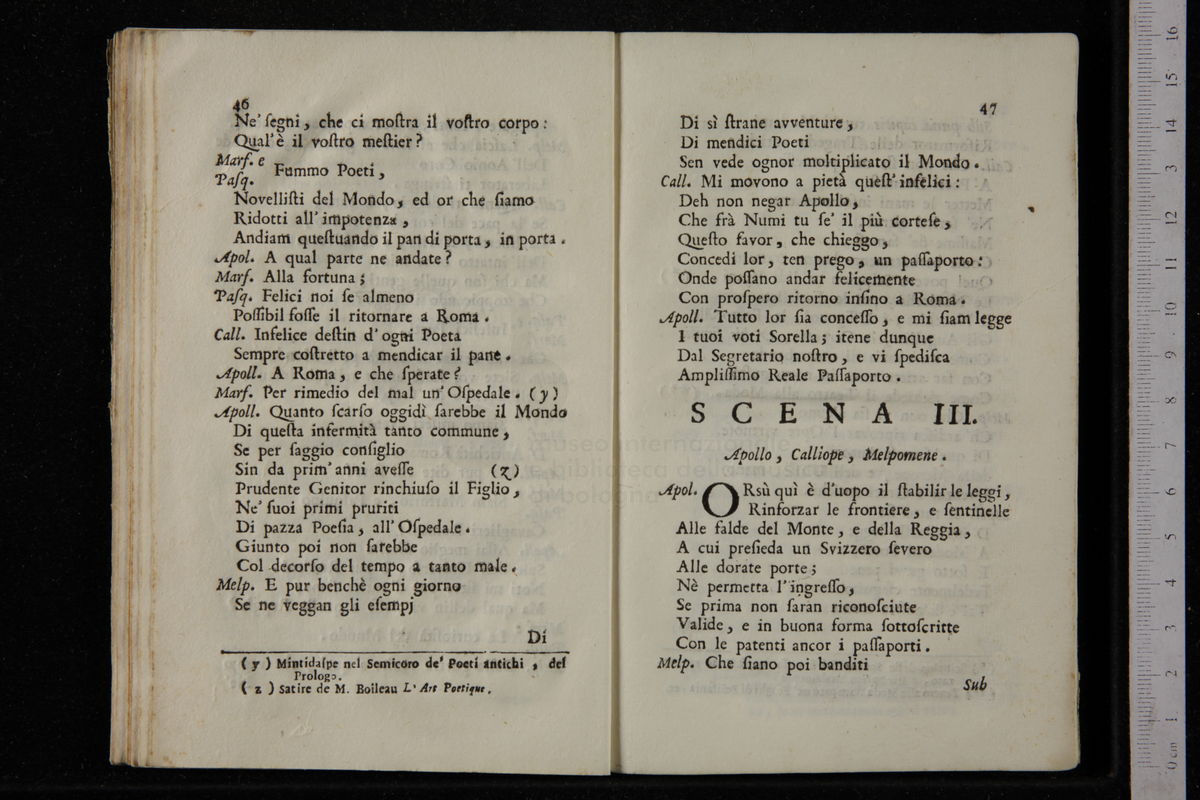 46
Ne' ſegni, che ci moſtra il voſtro corpo:
Qual'è il voſtro meſtier?
Marſ. e
Paſq. Fummo Poeti,
Novelliſti del Mondo, ed or che ſiamo
Ridotti all'impotenza,
Andiam queſtuando il pan di porta, in porta.
Apol. A qual parte ne andate?
Marſ. Alla fortuna;
Paſq. Felici noi ſe almeno
Poſſibil foſſe il ritornare a Roma.
Call. Infelice deſtin d'ogni Poeta
Sempre coſtretto a mendicar il pane.
Apoll. A Roma, e che ſperate?
Marſ. Per rimedio del mal un'Oſpedale. (y)
Apoll. Quanto ſcarſo oggidì ſarebbe il Mondo
Di queſta infermità tanto commune,
Se per ſaggio conſiglio
Sin da prim'anni aveſſe (z)
Prudente Genitor rinchiuſo il Figlio,
Ne' ſuoi primi pruriti
Di pazza Poeſia, all'Oſpedale.
Giunto poi non ſarebbe
Col decorſo del tempo a tanto male.
Melp. E pur benchè ogni giorno
Se ne veggan gli eſempj
Di
(y) Mintidaſpe nel Semicoro de' Poeti antichi, del
Prologo.
(z) Satire de M. Boileau L' Art Poetique.
47
Di sì ſtrane avventure,
Di mendici Poeti
Sen vede ognor moltiplicato il Mondo.
Call. Mi movono a pietà queſt'infelici:
Deh non negar Apollo,
Che frà Numi tu ſe' il più corteſe,
Queſto favor, che chieggo,
Concedi lor, ten prego, un paſſaporto:
Onde poſſano andar felicemente
Con proſpero ritorno inſino a Roma.
Apoll. Tutto lor ſia conceſſo, e mi ſiam legge
I tuoi voti Sorella; itene dunque
Dal Segretario noſtro, e vi ſpediſca
Ampliſſimo Reale Paſſaporto.
SCENA III.
Apollo, Calliope, Melpomene.
Apol. ORsù quì è d'uopo il ſtabilir le leggi,
Rinforzar le frontiere, e ſentinelle
Alle falde del Monte, e della Reggia,
A cui preſieda un Svizzero ſevero
Alle dorate porte;
Nè permetta l'ingreſſo,
Se prima non ſaran riconoſciute
Valide, e in buona forma ſottoſcritte
Con le patenti ancor i paſſaporti.
Melp. Che ſiano poi banditi
Sub
museo internazionale
e biblioteca della musica
di bologna
0 cm 1 2 3 4 5 6 7 8 9 10 11 12 13 14 15 16